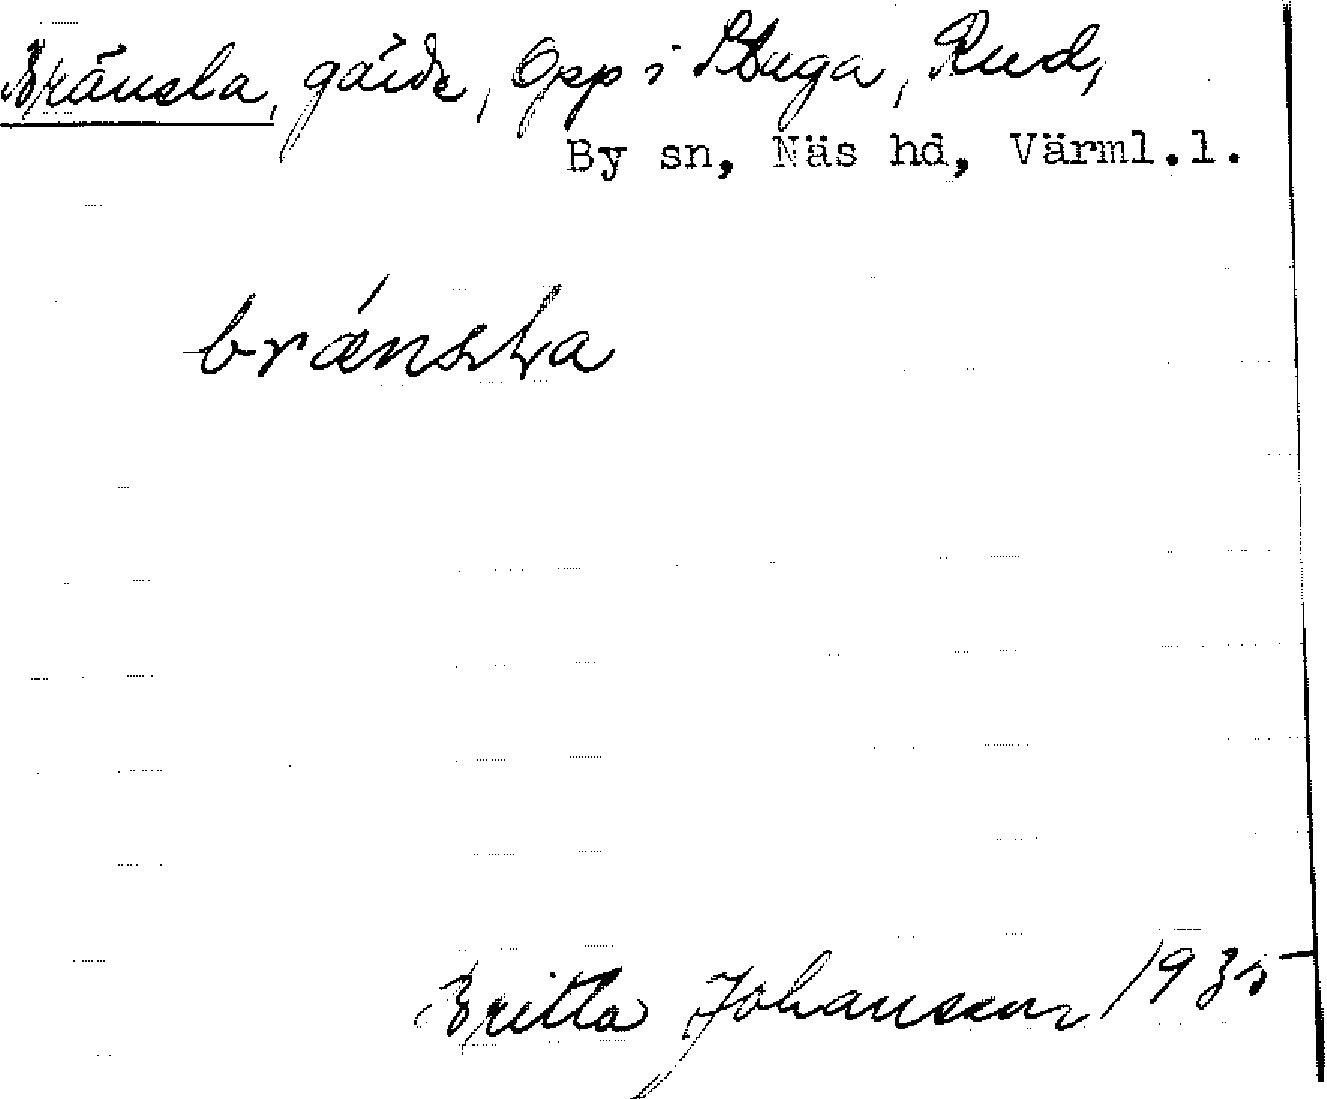 Bränsla, gärde, Opp i Stuga, Rud,
By sn, Näs hd, Värml.l.
Britta Johansson 1935